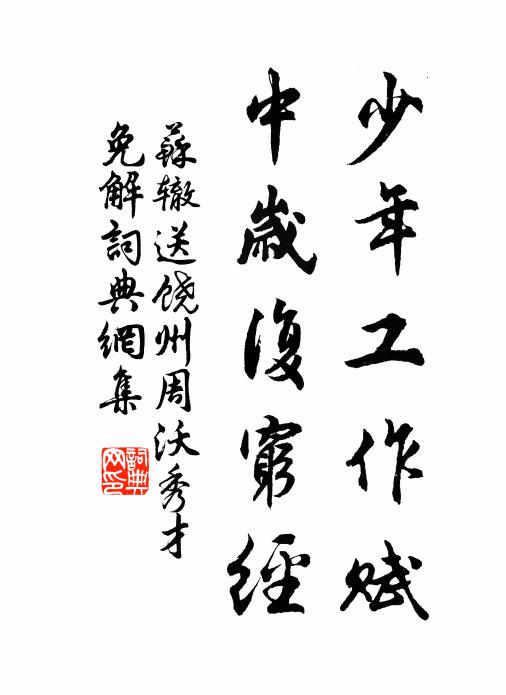 少年工作赋
中岁復窮經
蘇辙送饶州周沃秀才
免解詞典網集
詞典
网印